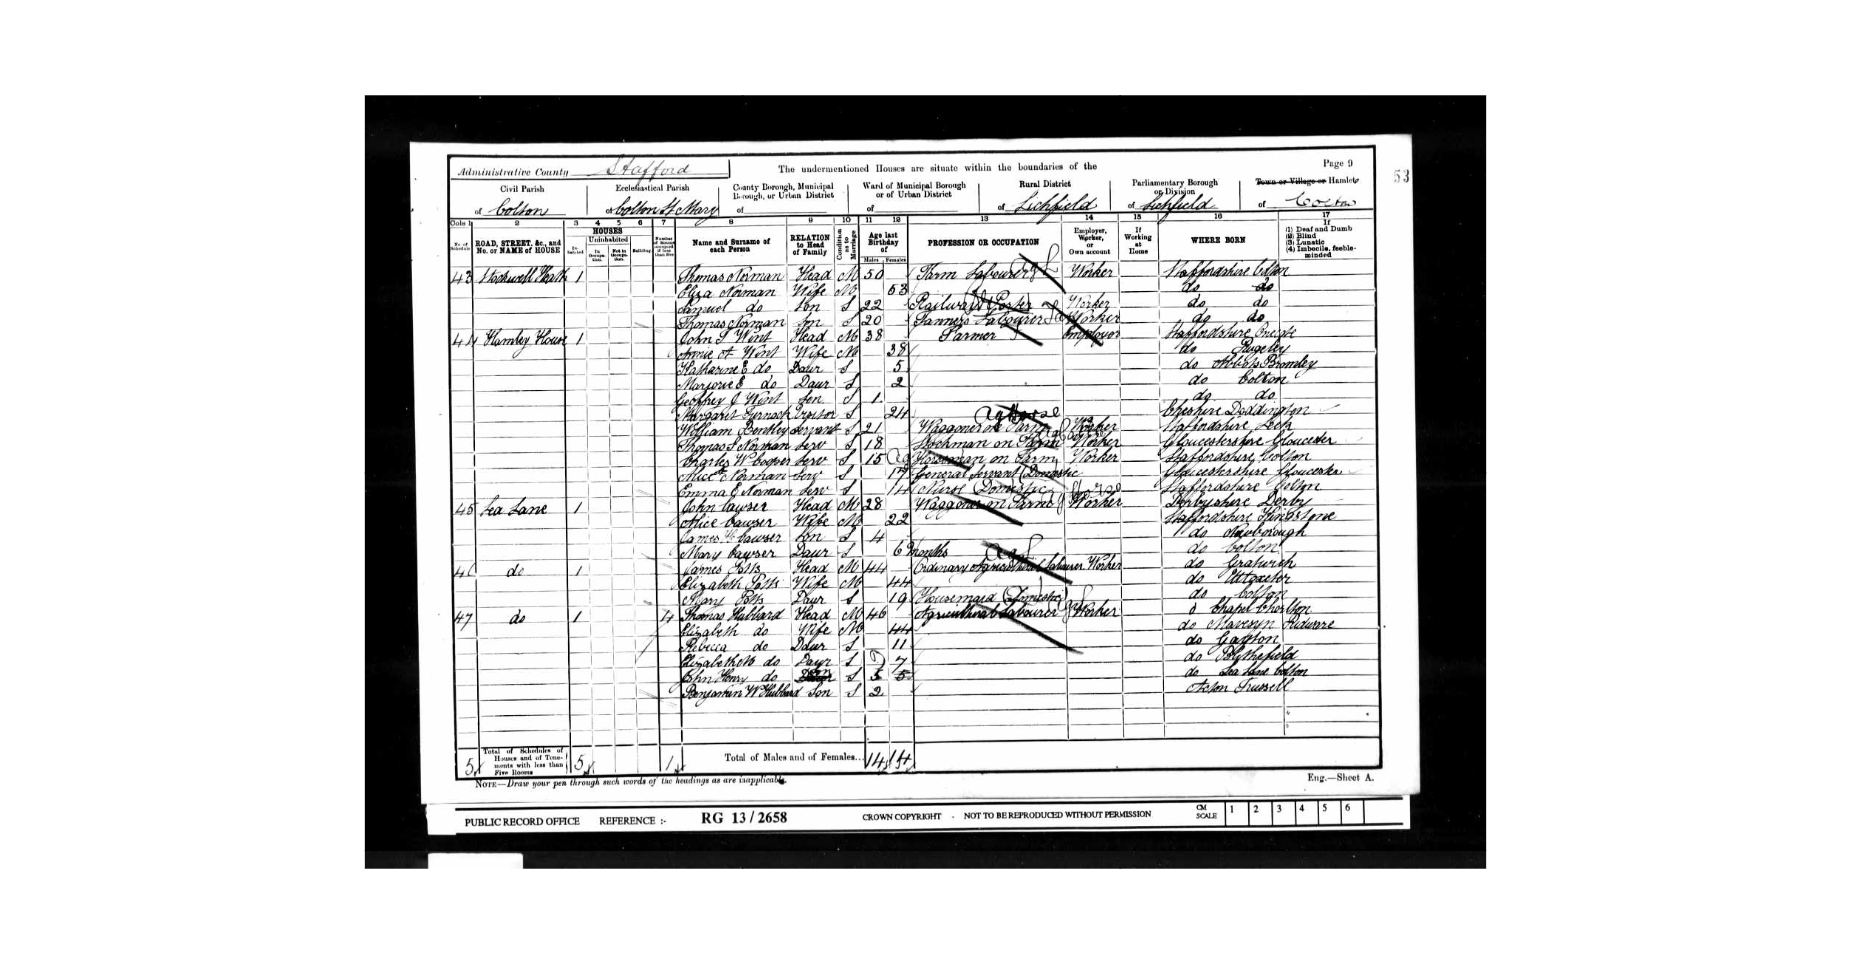 Administrative County Stafford
The undermentioned Houses are situate within the boundaries of the
Page 9
53
Civil Parish of Colton
Ecclesiastical Parish of Colton St Mary
County Borough, Municipal Borough, or Urban District of
Ward of Municipal Borough or of Urban District of
Rural District of Lichfield
Parliamentary Borough or Division of Lichfield
Town or Village or Hamlet of Colton
Cols 1 2 3 4 5 6 7 8 9 10 11 12 13 14 15 16 17
No. of Schedule
ROAD, STREET, &c., and No. or NAME of HOUSE
HOUSES
Uninhabited
Name and Surname of each Person
RELATION to Head of Family
Condition as to Marriage
Age last Birthday of
Males Females
PROFESSION OR OCCUPATION
Employer, Worker, or Own account
If Working at Home
WHERE BORN
If (1) Deaf and Dumb (2) Blind (3) Lunatic (4) Imbecile, feeble-minded
43 Stockwell Heath 1 Thomas Norman Head M 50 Farm Labourer Worker Staffordshire Colton
Eliza Norman Wife M 53 do do
Samuel do Son S 22 Railway Porter Worker do do
Thomas Norman Son S 20 Farmers Labourer Worker do do
44 Hamley House 1 John S Wint Head M 38 Farmer Employer Staffordshire
Annie A Wint Wife M 38 do Rugeley
Katharine E do Daur S 5 do Abbots Bromley
Marjorie E do Daur S 2 do Colton
Geoffrey J Wint Son S 1 do do
Margaret Visitor S 24 Cheshire Doddington
William Bentley Servant S 21 Waggoner on Farm Worker Staffordshire Leek
Thomas S Norman Serv S 18 Stockman on Farm Worker Gloucestershire Gloucester
Charles W Cooper Serv S 15 Horseman on Farm Worker Staffordshire Colton
Alice Norman Serv S 17 General Servant (Domestic) Gloucestershire Gloucester
Emma E Norman Serv S 14 Nurse Domestic Staffordshire Colton
45 Lea Lane 1 John Cawser Head M 28 Waggoner on Farm Worker Derbyshire Derby
Alice Cawser Wife M 22 Staffordshire Kingstone
James Cawser Son S 4 do Newborough
Mary Cawser Daur S 6 months do Colton
46 do 1 James Potts Head M 44 Ordinary Agricultural Labourer Worker do Gratwich
Elizabeth Potts Wife M 44 do Uttoxeter
Mary Potts Daur S 19 Housemaid (Domestic) do Colton
47 do 1 4 Thomas Hubbard Head M 46 Agricultural Labourer Worker do Chapel Chorlton
Elizabeth do Wife M 44 do Mavesyn Ridware
Rebecca do Daur S 11 do Gayton
Elizabeth do Daur S 7 do Blythefield
John Henry do Son S 5 do Lea Lane Colton
Benjamin W Hubbard Son S 2 Acton Trussell
5 Total of Schedules of Houses and of Tenements with less than Five Rooms 5 1 Total of Males and of Females... 14 14
NOTE—Draw your pen through such words of the headings as are inapplicable.
Eng.—Sheet A.
PUBLIC RECORD OFFICE REFERENCE :- RG 13 / 2658 CROWN COPYRIGHT - NOT TO BE REPRODUCED WITHOUT PERMISSION CM SCALE 1 2 3 4 5 6